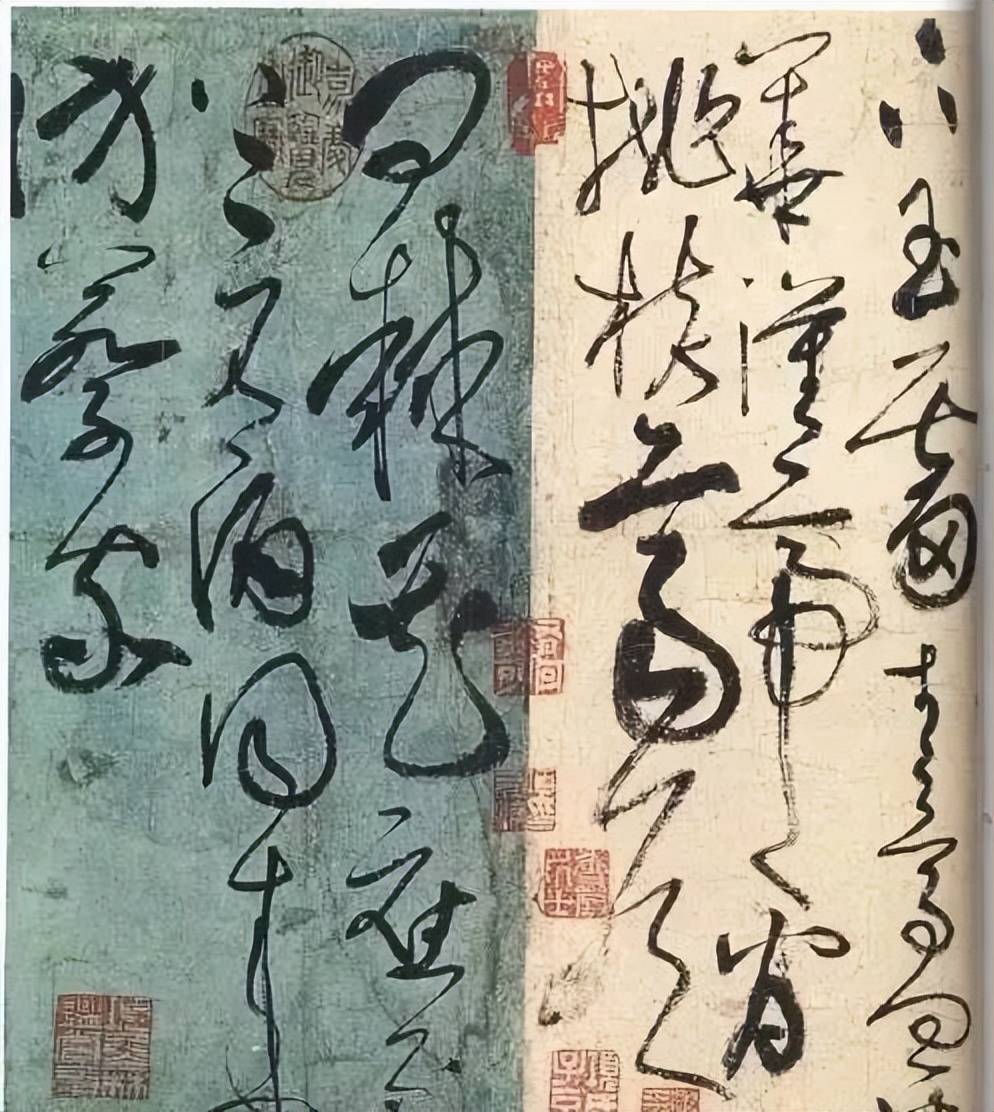 下玉霤青鳥向
華漢帝看
桃核齊侯
問棘花應
上元酒同來
訪蔡家